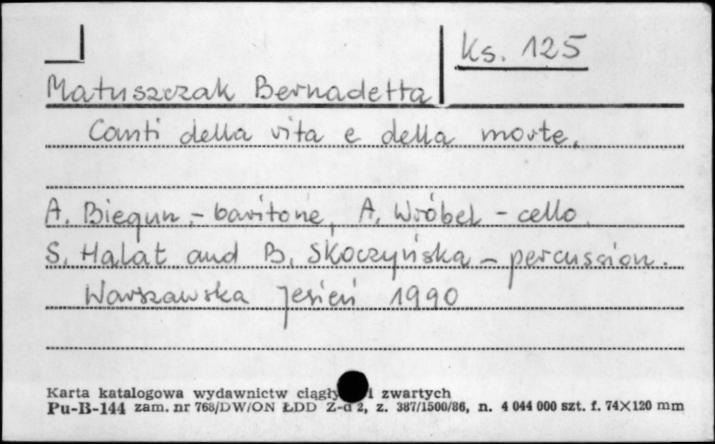 Ks. 125
Matuszczak Bernadetta
Canti della vita e della morte.
A. Biegun - baritone, A. Wróbel - cello.
S. Halat and B. Skoczyńska - percussion.
Warszawska Jesień 1990
Karta katalogowa wydawnictw ciągły i zwartych
Pu-B-144 zam. nr 768/DW/ON ŁDD Z-d 2, z. 387/1500/86, n. 4 044 000 szt. f. 74×120 mm